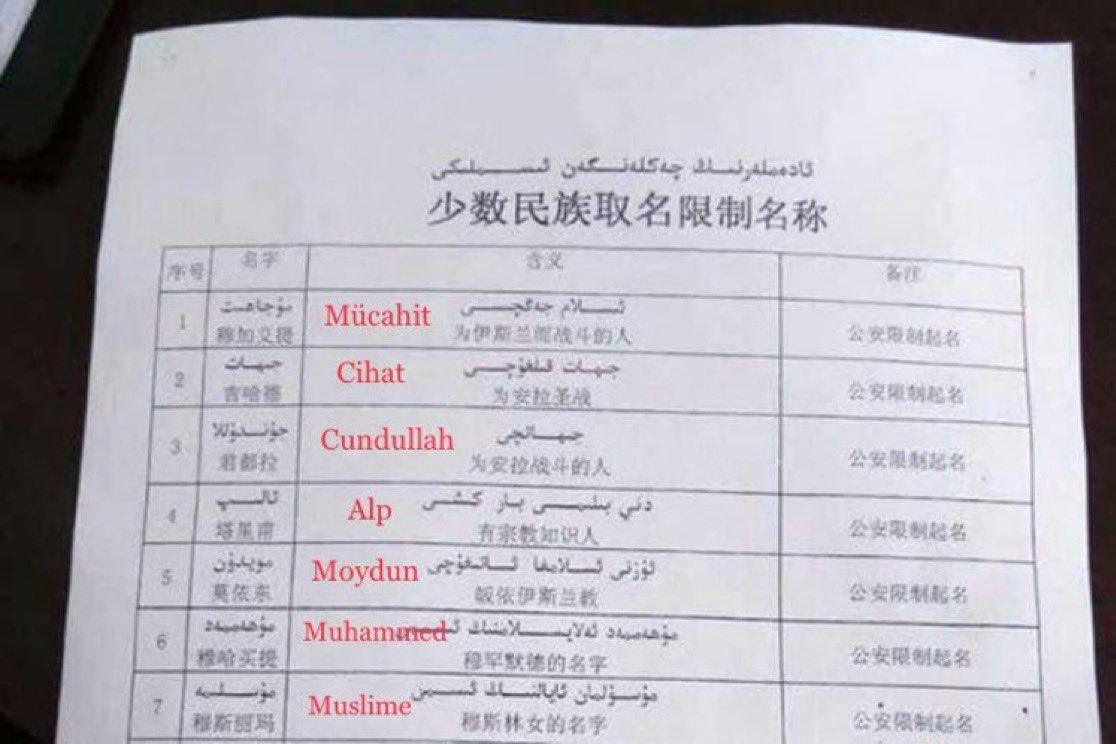 ئادەملەرنىڭ چەكلەنگەن ئىسىملىكى
少数民族取名限制名称
序号 名字 含义 备注
مۇجاھىت Mücahit ئىسلام جەڭچىسى
1 穆加艾提 为伊斯兰而战斗的人 公安限制起名
جىھات Cihat جىھات قىلغۇچى
2 吉哈德 为安拉圣战 公安限制起名
جۇندۇللا Cundullah جىھادچى
3 君都拉 为安拉战斗的人 公安限制起名
تالىپ Alp دىنىي بىلىمى بار كىشى
4 塔里甫 有宗教知识人 公安限制起名
مويدۇن Moydun ئۆزنى ئىسلامغا ئاتىغۇچى
5 莫依东 皈依伊斯兰教 公安限制起名
مۇھەممەد Muhammed مۇھەممەد ئەلەيھىسسالامنىڭ ئىسمى
6 穆哈买提 穆罕默德的名字 公安限制起名
مۇسلىمە Muslime مۇسۇلمان ئايالنىڭ ئىسمى
7 穆斯丽玛 穆斯林女的名字 公安限制起名